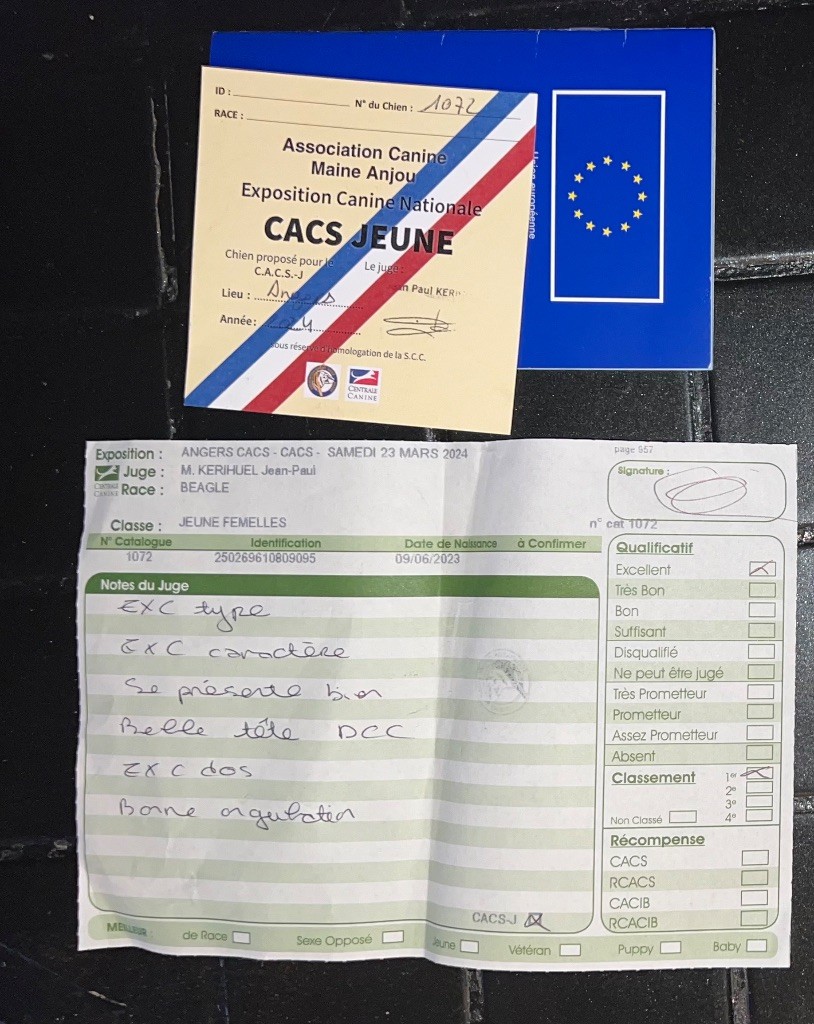 ID :
N° du Chien : 1072
RACE :
Association Canine
Maine Anjou
Exposition Canine Nationale
CACS JEUNE
Chien proposé pour le
C.A.C.S.-J
Le juge :
Paul KERI
Lieu : Angers
Année :
sous réserve d'homologation de la S.C.C.
CENTRALE
CANINE
Union européenne
Exposition : ANGERS CACS - CACS - SAMEDI 23 MARS 2024
page 557
Juge : M. KERIHUEL Jean-Paul
CENTRALE
CANINE
Race : BEAGLE
Signature :
Classe : JEUNE FEMELLES
n° cat 1072
N° Catalogue Identification Date de Naissance à Confirmer
1072 250269610809095 09/06/2023
Notes du Juge
EXC type
EXC caractère
Se présente bien
Belle tête DCC
EXC dos
Bonne angulation
CACS-J
Qualificatif
Excellent
Très Bon
Bon
Suffisant
Disqualifié
Ne peut être jugé
Très Prometteur
Prometteur
Assez Prometteur
Absent
Classement 1er
2e
3e
Non Classé 4e
Récompense
CACS
RCACS
CACIB
RCACIB
MEILLEUR : de Race Sexe Opposé Jeune Vétéran Puppy Baby